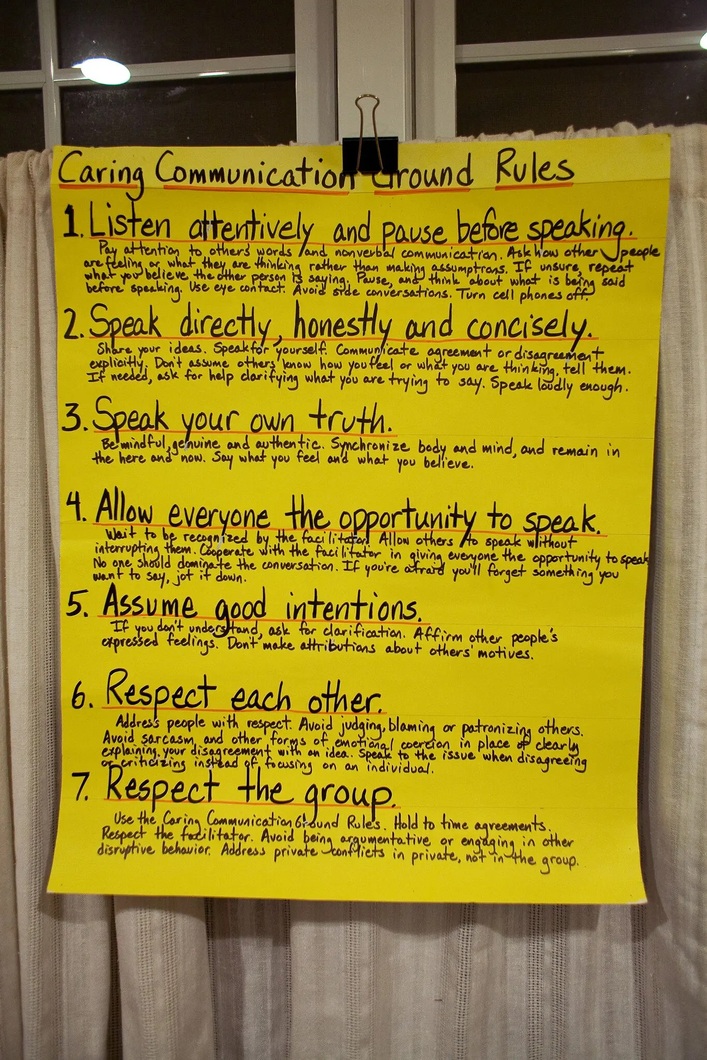 Caring Communication Ground Rules
1. Listen attentively and pause before speaking.
Pay attention to others' words and nonverbal communication. Ask how other people
are feeling or what they are thinking rather than making assumptions. If unsure, repeat
what you believe the other person is saying. Pause, and think about what is being said
before speaking. Use eye contact. Avoid side conversations. Turn cell phones off.
2. Speak directly, honestly and concisely.
Share your ideas. Speak for yourself. Communicate agreement or disagreement
explicitly. Don't assume others know how you feel or what you are thinking, tell them.
If needed, ask for help clarifying what you are trying to say. Speak loudly enough.
3. Speak your own truth.
Be mindful, genuine and authentic. Synchronize body and mind, and remain in
the here and now. Say what you feel and what you believe.
4. Allow everyone the opportunity to speak.
Wait to be recognized by the facilitator. Allow others to speak without
interrupting them. Cooperate with the facilitator in giving everyone the opportunity to speak.
No one should dominate the conversation. If you're afraid you'll forget something you
want to say, jot it down.
5. Assume good intentions.
If you don't understand, ask for clarification. Affirm other people's
expressed feelings. Don't make attributions about others' motives.
6. Respect each other.
Address people with respect. Avoid judging, blaming or patronizing others.
Avoid sarcasm and other forms of emotional coercion in place of clearly
explaining your disagreement with an idea. Speak to the issue when disagreeing
or criticizing instead of focusing on an individual.
7. Respect the group.
Use the Caring Communication Ground Rules. Hold to time agreements.
Respect the facilitator. Avoid being argumentative or engaging in other
disruptive behavior. Address private conflicts in private, not in the group.